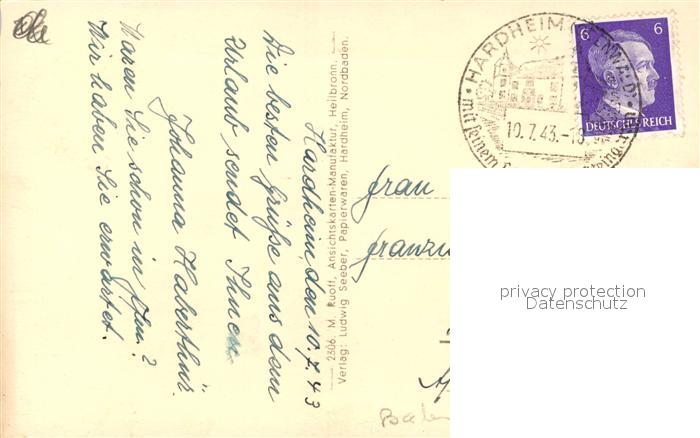 Hardheim, den 10.7.43
Die besten Grüße aus dem
Urlaub sendet Ihnen
Johanna Haberthür.
Waren Sie schon in Ffm.?
Wir haben Sie erwartet.
2306. M. Ruoff, Ansichtskarten-Manufaktur, Heilbronn.
Verlag: Ludwig Seeber, Papierwaren, Hardheim, Nordbaden.
HARDHEIM
10.7.43.-18
mit seinem
6 6
DEUTSCHES REICH
Frau
privacy protection
Datenschutz